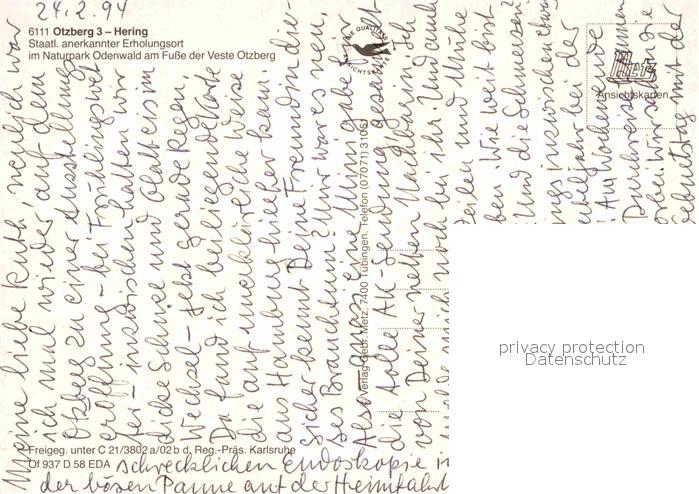 24.2.94
6111 Otzberg 3 – Hering
Staatl. anerkannter Erholungsort
im Naturpark Odenwald am Fuße der Veste Otzberg
Metz
Ansichtskarten
Verlag Gebr. Metz, 7400 Tübingen, Telefon (07071) 31065
Meine liebe Ruth, neulich war
ich mal wieder auf dem
Otzberg zu einer Ausstellungs
eröffnung – bei Frühlingswet
ter – inzwischen hatten wir
dicke Schnee und Glatteis im
Wechsel – jetzt gerade Regen.
Da fand ich beiliegende Karte
die auf unerklärliche Weise
aus Hamburg hierher kam.
Sicher kennt Deine Freundin die-
ses Brauchtum? Mir war es neu.
die tolle AK-Sendung
von Deiner netten Nachbarin. Ich
noch bei ihr. Und auch
Zeilen und Mühe
ben. Wie weit bist
Und die Schmerzen?
ngs inzwischen
bei der
Am Wochenende
Wir
Geburtstag mit der
schrecklichen Endoskopie
der bösen Panne auf der Heimfahrt
Freigeg. unter C 21/3802 a/02 b d. Reg.-Präs. Karlsruhe
Of 937 D 58 EDA
privacy protection
Datenschutz